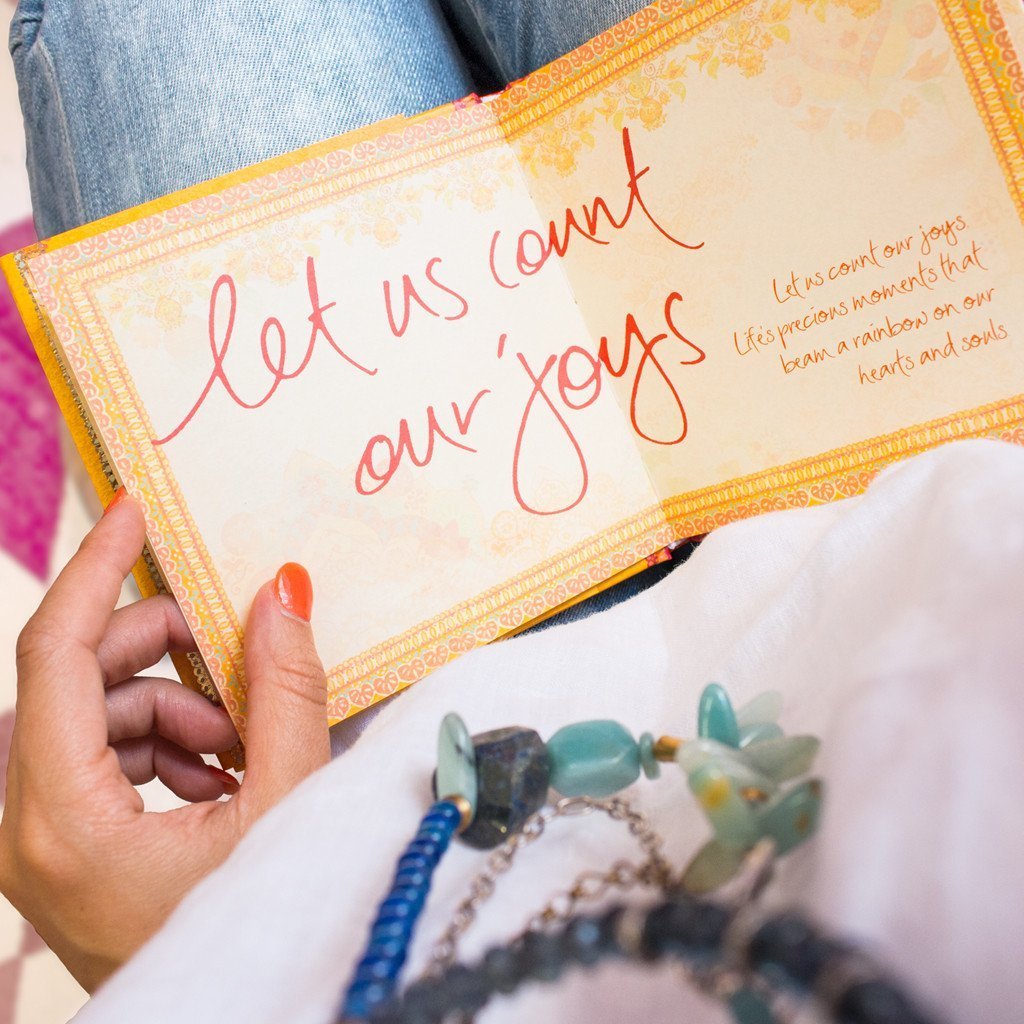 let us count
our joys
Let us count our joys.
Life's precious moments that
beam a rainbow on our
hearts and souls